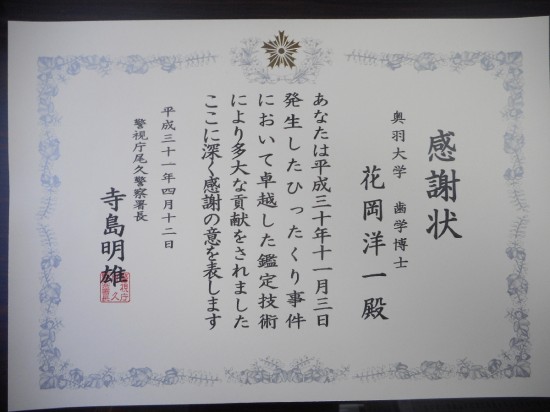 感謝状
奥羽大学 歯学博士
花岡洋一殿
あなたは平成三十年十一月三日
発生したひったくり事件
において卓越した鑑定技術
により多大な貢献をされました
ここに深く感謝の意を表します
平成三十一年四月十二日
警視庁尾久警察署長
寺島明雄